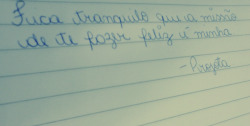 Fica tranquilo que a missão
de te fazer feliz é minha
- Projota